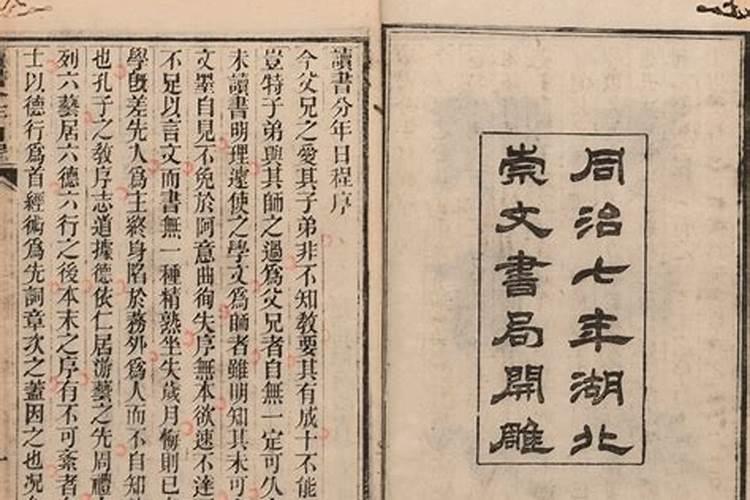 同治七年湖北
崇文書局開雕
讀書分年日程序
今父兄之愛其子弟非不知教要其有成十不能
豈特子弟與其師之過為父兄者自無一定可久
未讀書明理遽使之學文為師者雖明知其未可
文墨自見不免於阿意曲徇失序無本欲速不達
不足以言文而書無一種精熟坐失歲月悔則已
學旣差先入爲主終身陷於務外爲人而不自知
也孔子之教序志道據德依仁居游藝之先周禮
列六藝居六德六行之後本末之序有不可紊者
士以德行爲首經術爲先詞章次之蓋因之也況